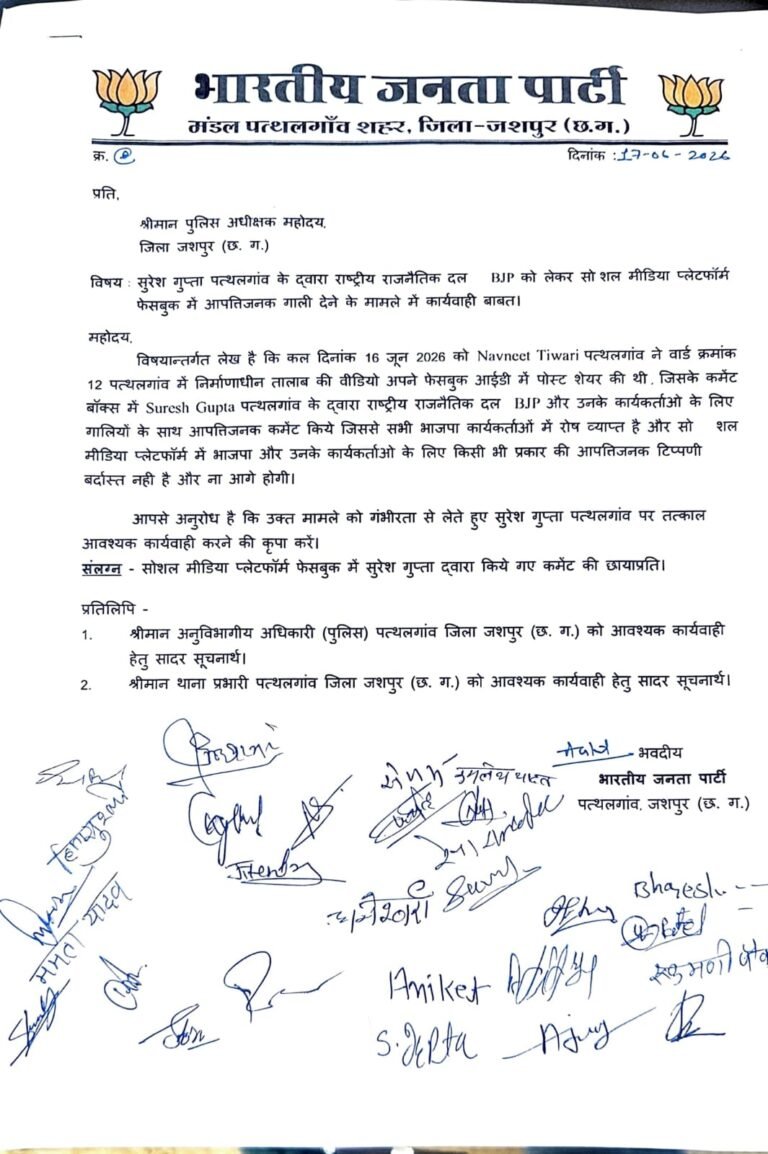 भारतीय जनता पार्टी
मंडल पत्थलगाँव शहर, जिला-जशपुर (छ.ग.)
क्र. दिनांक :17-06-2026
प्रति,
श्रीमान पुलिस अधीक्षक महोदय,
जिला जशपुर (छ. ग.)
विषय : सुरेश गुप्ता पत्थलगांव के द्वारा राष्ट्रीय राजनैतिक दल BJP को लेकर सो शल मीडिया प्लेटफॉर्म
फेसबुक में आपत्तिजनक गाली देने के मामले में कार्यवाही बाबत।
महोदय,
विषयान्तर्गत लेख है कि कल दिनांक 16 जून 2026 को Navneet Tiwari पत्थलगांव ने वार्ड क्रमांक
12 पत्थलगांव में निर्माणाधीन तालाब की वीडियो अपने फेसबुक आईडी में पोस्ट शेयर की थी, जिसके कमेंट
बॉक्स में Suresh Gupta पत्थलगांव के द्वारा राष्ट्रीय राजनैतिक दल BJP और उनके कार्यकर्ताओ के लिए
गालियों के साथ आपत्तिजनक कमेंट किये जिससे सभी भाजपा कार्यकर्ताओं में रोष व्याप्त है और सो शल
मीडिया प्लेटफॉर्म में भाजपा और उनके कार्यकर्ताओ के लिए किसी भी प्रकार की आपत्तिजनक टिप्पणी
बर्दास्त नही है और ना आगे होगी।
आपसे अनुरोध है कि उक्त मामले को गंभीरता से लेते हुए सुरेश गुप्ता पत्थलगांव पर तत्काल
आवश्यक कार्यवाही करने की कृपा करें।
संलग्न - सोशल मीडिया प्लेटफॉर्म फेसबुक में सुरेश गुप्ता द्वारा किये गए कमेंट की छायाप्रति।
प्रतिलिपि -
1. श्रीमान अनुविभागीय अधिकारी (पुलिस) पत्थलगांव जिला जशपुर (छ. ग.) को आवश्यक कार्यवाही
हेतु सादर सूचनार्थ।
2. श्रीमान थाना प्रभारी पत्थलगांव जिला जशपुर (छ. ग.) को आवश्यक कार्यवाही हेतु सादर सूचनार्थ।
भवदीय
भारतीय जनता पार्टी
पत्थलगांव, जशपुर (छ. ग.)
Jitendra
ममता यादव
Aniket
S. Gupta
Ajay